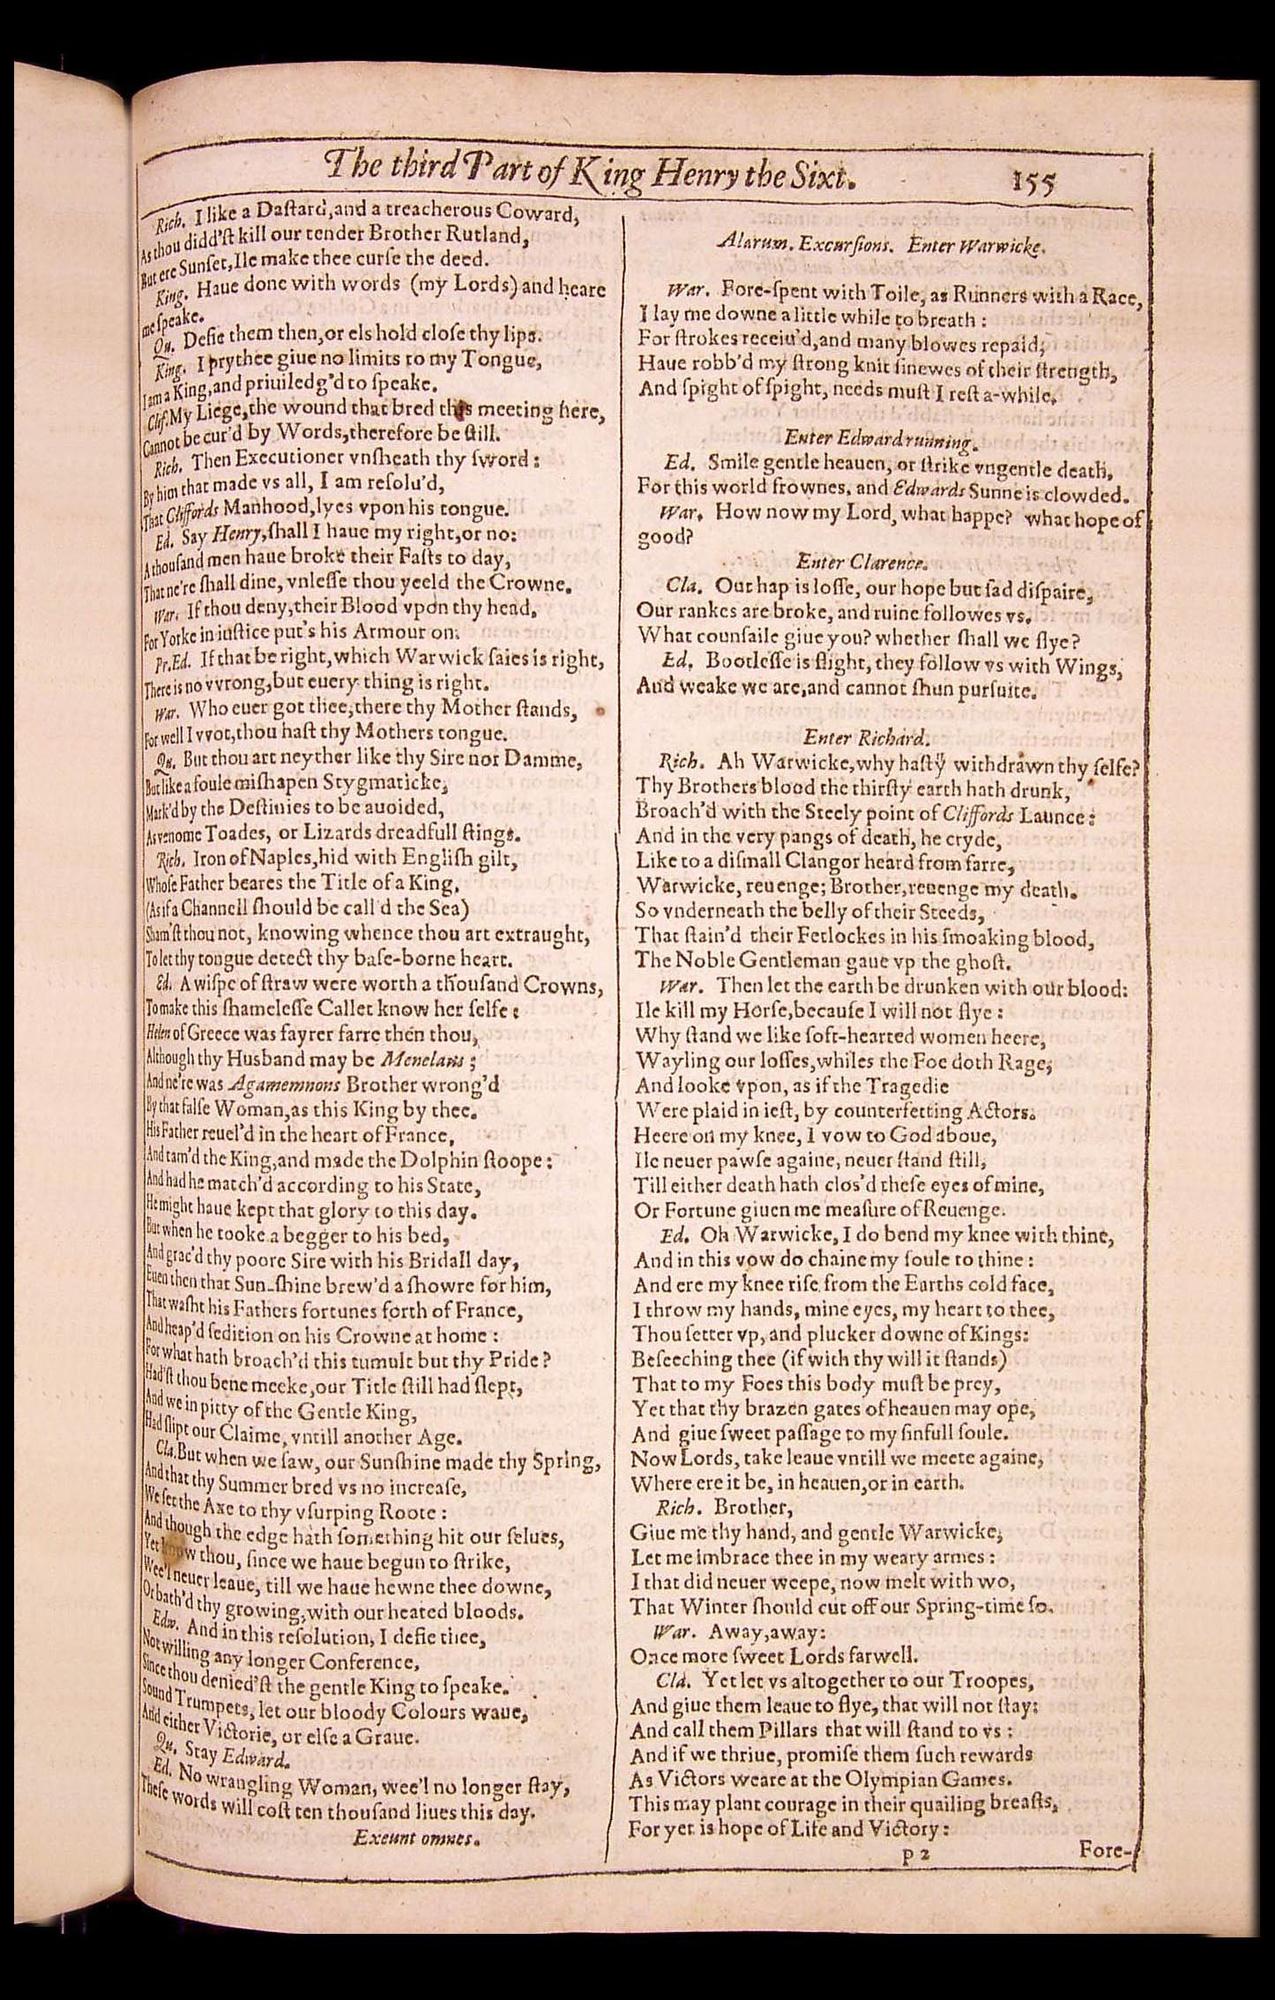 The third Part of King Henry the Sixt. 155
Rich. I like a Daſtard, and a treacherous Coward,
As thou didd'ſt kill our tender Brother Rutland,
But ere Sunſet, Ile make thee curſe the deed.
King. Haue done with words (my Lords) and heare
me ſpeake.
Qu. Defie them then, or els hold cloſe thy lips.
King. I prythee giue no limits to my Tongue,
I am a King, and priuiledg'd to ſpeake.
Clif. My Liege, the wound that bred this meeting here,
Cannot be cur'd by Words, therefore be ſtill.
Rich. Then Executioner vnſheath thy ſword:
By him that made vs all, I am reſolu'd,
That Cliffords Manhood, lyes vpon his tongue.
Ed. Say Henry, ſhall I haue my right, or no:
A thouſand men haue broke their Faſts to day,
That ne're ſhall dine, vnleſſe thou yeeld the Crowne.
War. If thou deny, their Blood vpon thy head,
For Yorke in iuſtice put's his Armour on.
Pr.Ed. If that be right, which Warwick ſaies is right,
There is no vvrong, but euery thing is right.
War. Who euer got thee, there thy Mother ſtands,
For well I vvot, thou haſt thy Mothers tongue.
Qu. But thou art neyther like thy Sire nor Damme,
But like a foule miſhapen Stygmaticke,
Mark'd by the Deſtinies to be auoided,
As venome Toades, or Lizards dreadfull ſtings.
Rich. Iron of Naples, hid with Engliſh gilt,
Whoſe Father beares the Title of a King,
(As if a Channell ſhould be call'd the Sea)
Sham'ſt thou not, knowing whence thou art extraught,
To let thy tongue detect thy baſe-borne heart.
Ed. A wiſpe of ſtraw were worth a thouſand Crowns,
To make this ſhameleſſe Callet know her ſelfe:
Helen of Greece was fayrer farre then thou,
Although thy Husband may be Menelaus;
And ne're was Agamemnons Brother wrong'd
By that falſe Woman, as this King by thee.
His Father reuel'd in the heart of France,
And tam'd the King, and made the Dolphin ſtoope:
And had he match'd according to his State,
He might haue kept that glory to this day.
But when he tooke a begger to his bed,
And grac'd thy poore Sire with his Bridall day,
Euen then that Sun-ſhine brew'd a ſhowre for him,
That waſht his Fathers fortunes forth of France,
And heap'd ſedition on his Crowne at home:
For what hath broach'd this tumult but thy Pride?
Had'ſt thou bene meeke, our Title ſtill had ſlept,
And we in pitty of the Gentle King,
Had ſlipt our Claime, vntill another Age.
Cla. But when we ſaw, our Sunſhine made thy Spring,
And that thy Summer bred vs no increaſe,
We ſet the Axe to thy vſurping Roote:
And though the edge hath ſomething hit our ſelues,
Yet know thou, ſince we haue begun to ſtrike,
Wee'l neuer leaue, till we haue hewne thee downe,
Or bath'd thy growing, with our heated bloods.
Edw. And in this reſolution, I defie thee,
Not willing any longer Conference,
Since thou denied'ſt the gentle King to ſpeake.
Sound Trumpets, let our bloody Colours waue,
And either Victorie, or elſe a Graue.
Qu. Stay Edward.
Ed. No wrangling Woman, wee'l no longer ſtay,
Theſe words will coſt ten thouſand liues this day.
Exeunt omnes.
Alarum. Excurſions. Enter Warwicke.
War. Fore-ſpent with Toile, as Runners with a Race,
I lay me downe a little while to breath:
For ſtrokes receiu'd, and many blowes repaid,
Haue robb'd my ſtrong knit ſinewes of their ſtrength,
And ſpight of ſpight, needs muſt I reſt a-while.
Enter Edward running.
Ed. Smile gentle heauen, or ſtrike vngentle death,
For this world frownes, and Edwards Sunne is clowded.
War. How now my Lord, what happe? what hope of
good?
Enter Clarence.
Cla. Our hap is loſſe, our hope but ſad diſpaire,
Our rankes are broke, and ruine followes vs.
What counſaile giue you? whether ſhall we flye?
Ed. Bootleſſe is flight, they follow vs with Wings,
And weake we are, and cannot ſhun purſuite.
Enter Richard.
Rich. Ah Warwicke, why haſt ÿ withdrawn thy ſelfe?
Thy Brothers blood the thirſty earth hath drunk,
Broach'd with the Steely point of Cliffords Launce:
And in the very pangs of death, he cryde,
Like to a diſmall Clangor heard from farre,
Warwicke, reuenge; Brother, reuenge my death.
So vnderneath the belly of their Steeds,
That ſtain'd their Fetlockes in his ſmoaking blood,
The Noble Gentleman gaue vp the ghoſt.
War. Then let the earth be drunken with our blood:
Ile kill my Horſe, becauſe I will not flye:
Why ſtand we like ſoft-hearted women heere,
Wayling our loſſes, whiles the Foe doth Rage,
And looke vpon, as if the Tragedie
Were plaid in ieſt, by counterfetting Actors.
Heere on my knee, I vow to God aboue,
Ile neuer pawſe againe, neuer ſtand ſtill,
Till either death hath clos'd theſe eyes of mine,
Or Fortune giuen me meaſure of Reuenge.
Ed. Oh Warwicke, I do bend my knee with thine,
And in this vow do chaine my ſoule to thine:
And ere my knee riſe from the Earths cold face,
I throw my hands, mine eyes, my heart to thee,
Thou ſetter vp, and plucker downe of Kings:
Beſeeching thee (if with thy will it ſtands)
That to my Foes this body muſt be prey,
Yet that thy brazen gates of heauen may ope,
And giue ſweet paſſage to my ſinfull ſoule.
Now Lords, take leaue vntill we meete againe,
Where ere it be, in heauen, or in earth.
Rich. Brother,
Giue me thy hand, and gentle Warwicke,
Let me imbrace thee in my weary armes:
I that did neuer weepe, now melt with wo,
That Winter ſhould cut off our Spring-time ſo.
War. Away, away:
Once more ſweet Lords farwell.
Cla. Yet let vs altogether to our Troopes,
And giue them leaue to flye, that will not ſtay:
And call them Pillars that will ſtand to vs:
And if we thriue, promiſe them ſuch rewards
As Victors weare at the Olympian Games.
This may plant courage in their quailing breaſts,
For yet is hope of Life and Victory:
p 2 Fore-